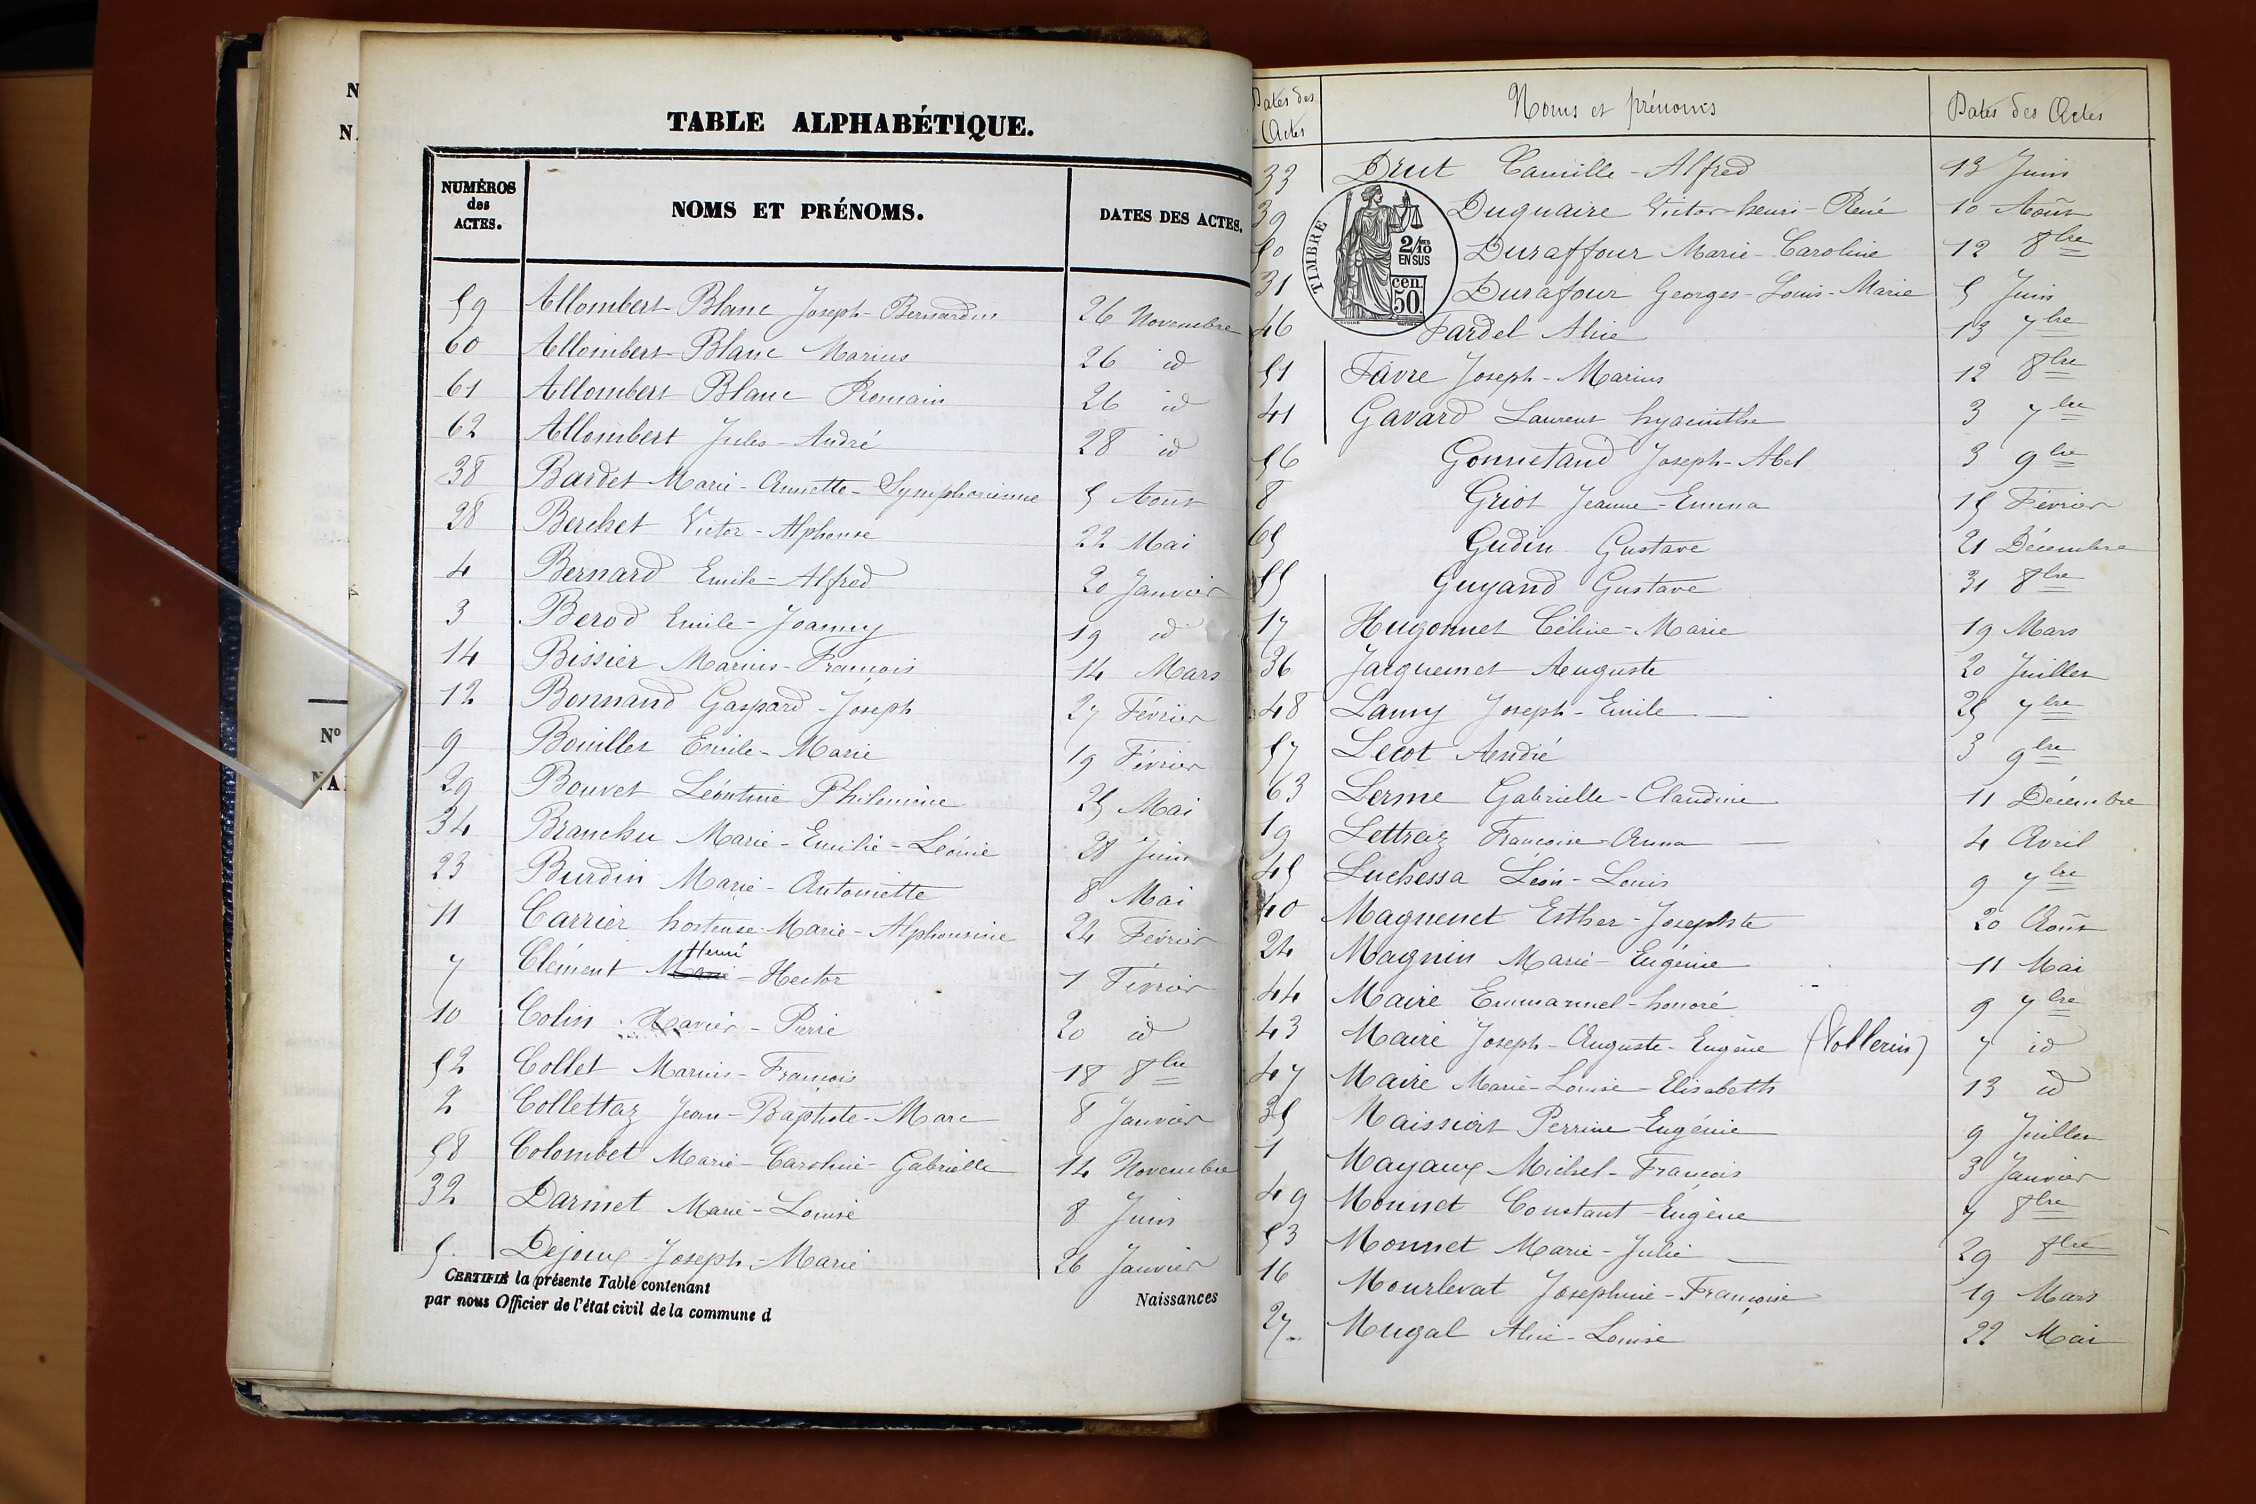 N
N.
N°
NA
TABLE ALPHABÉTIQUE.
NUMÉROS des ACTES. NOMS ET PRÉNOMS. DATES DES ACTES.
59 Allombert-Blanc Joseph-Bernardin 26 Novembre
60 Allombert-Blanc Marius 26 id
61 Allombert Blanc Romain 26 id
62 Allombert Jules-André 28 id
38 Bardet Marie-Annette-Symphorienne 5 Août
28 Berchet Victor-Alphonse 22 Mai
4 Bernard Emile-Alfred 20 Janvier
3 Berod Emile-Joanny 19 id
14 Bissier Marius-François 14 Mars
12 Bonnand Gaspard-Joseph 27 Février
9 Bouillet Emile-Marie 19 Février
29 Bouvet Léontine Philomène 25 Mai
34 Branchu Marie-Emilie-Léonie 28 Juin
23 Burdin Marie-Antoinette 8 Mai
11 Carrier hortense-Marie-Alphonsine 24 Février
Henri
7 Clément Marie-Hector 1 Février
10 Colin Xavier-Pierre 20 id
52 Collet Marius-François 18 8bre
2 Collettaz Jean-Baptiste-Marc 8 Janvier
58 Colombet Marie-Caroline-Gabrielle 14 Novembre
32 Darmet Marie-Louise 8 Juin
5 Dejoux Joseph-Marie 26 Janvier
CERTIFIÉ la présente Table contenant Naissances
par nous Officier de l'état civil de la commune d
Dates des Actes Noms et prénoms Dates des Actes
33 Drut Camille-Alfred 13 Juin
39 Duquaire Victor-henri-René 10 Août
50 Duraffour Marie-Caroline 12 8bre
31 Durafour Georges-Louis-Marie 5 Juin
46 Fardel Alice 13 7bre
TIMBRE
2/10 EN SUS
cen. 50
51 Favre Joseph-Marius 12 8bre
41 Gavard Laurent hyacinthe 3 7bre
56 Gonnetand Joseph-Abel 3 9bre
8 Griot Jeanne-Emma 15 Février
65 Gudin Gustave 21 Décembre
55 Guyand Gustave 31 8bre
17 Hugonnet Céline-Marie 19 Mars
36 Jacquemet Auguste 20 Juillet
48 Lamy Joseph-Emile 25 7bre
57 Lecot André 3 9bre
63 Lerme Gabrielle-Claudine 11 Décembre
19 Lettraz Françoise-Anna 4 Avril
45 Luchessa Léon-Louis 9 7bre
40 Magnenet Esther-Josephte 20 Août
24 Magnin Marie-Eugénie 11 Mai
44 Maire Emmanuel-honoré 9 7bre
43 Maire Joseph-Auguste-Eugène (Vollerin) 7 id
47 Maire Marie-Louise-Elisabeth 13 id
35 Maissiat Perrine-Eugénie 9 Juillet
1 Mayaux Michel-François 3 Janvier
49 Monnet Constant-Eugène 7 8bre
53 Monnet Marie-Julie 29 8bre
16 Mourlevat Joséphine-Françoise 19 Mars
27 Mugal Alice-Louise 22 Mai